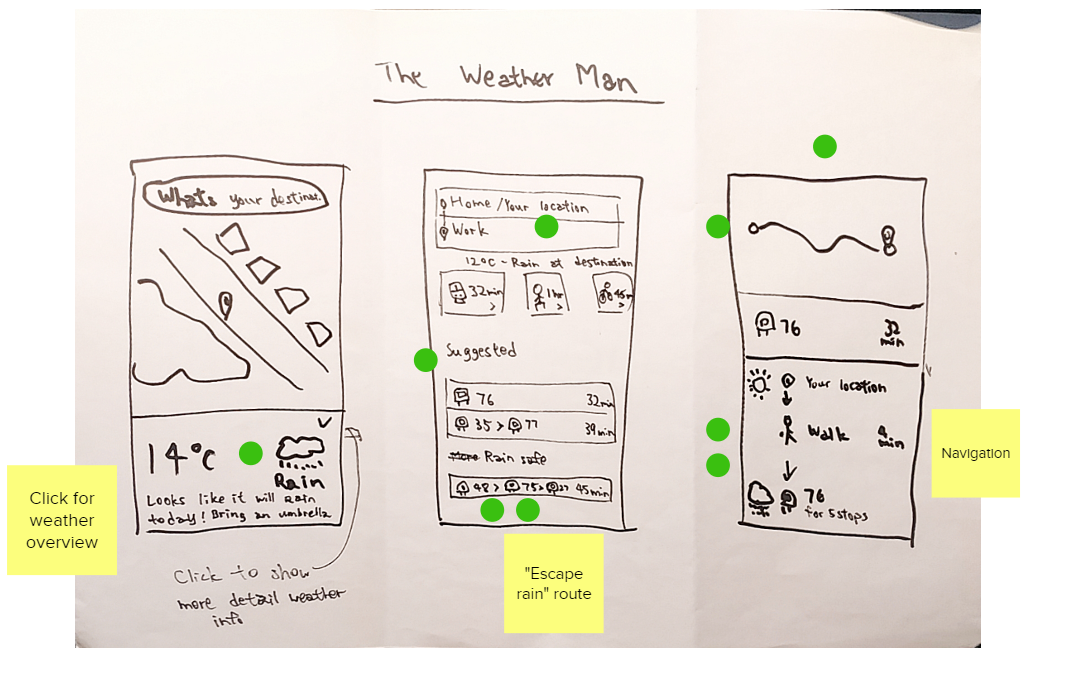 The Weather Man
Whats your destinat.
14°C
Rain
Looks like it will Rain
today! Bring an umbrella
Click for
weather
overview
Click to show
more detail weather
info
Home / Your location
Work
12°C - Rain at destination
32min >
1hr >
45m >
Suggested
76 32min
35 > 77 39min
more Rain safe
48 > 75 > 27 45min
"Escape
rain" route
76 32
min
Your location
Walk 4
min
76
for 5 stops
Navigation